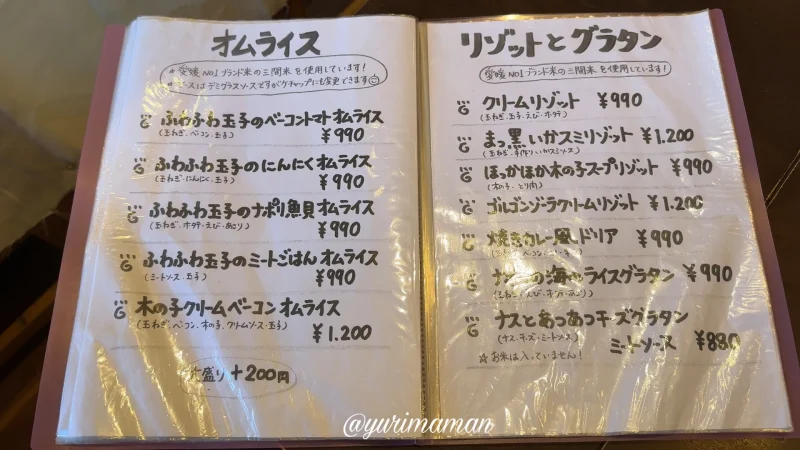 オムライス
★愛媛NO1ブランド米の三間米を使用しています!
ソースはデミグラスソースですがケチャップにも変更できます
ふわふわ玉子のベーコントマトオムライス
(玉ねぎ・ベーコン・玉子)
¥990
ふわふわ玉子のにんにくオムライス
(玉ねぎ・にんにく・玉子)
¥990
ふわふわ玉子のナポリ魚貝オムライス
(玉ねぎ・ホタテ・えび・あさり)
¥990
ふわふわ玉子のミートごはんオムライス
(ミートソース・玉子)
¥990
木の子クリームベーコンオムライス
(玉ねぎ・ベーコン・木の子・クリームソース・玉子)
¥1.200
盛り +200円
リゾットとグラタン
愛媛NO1ブランド米の三間米を使用しています!
クリームリゾット ¥990
(玉ねぎ・玉子・えび・ホタテ)
まっ黒いかスミリゾット ¥1.200
(玉ねぎ・手作りいかスミソース)
ほっかほか木の子スープリゾット ¥990
(木の子・とり肉)
ゴルゴンゾーラクリームリゾット ¥1.200
焼きカレー風ドリア ¥990
の海の ライスグラタン ¥990
ナスとあつあつチーズグラタン
(ナス・チーズ・ミートソース)
ミートソース ¥880
☆お米は入っていません!
@yurimaman